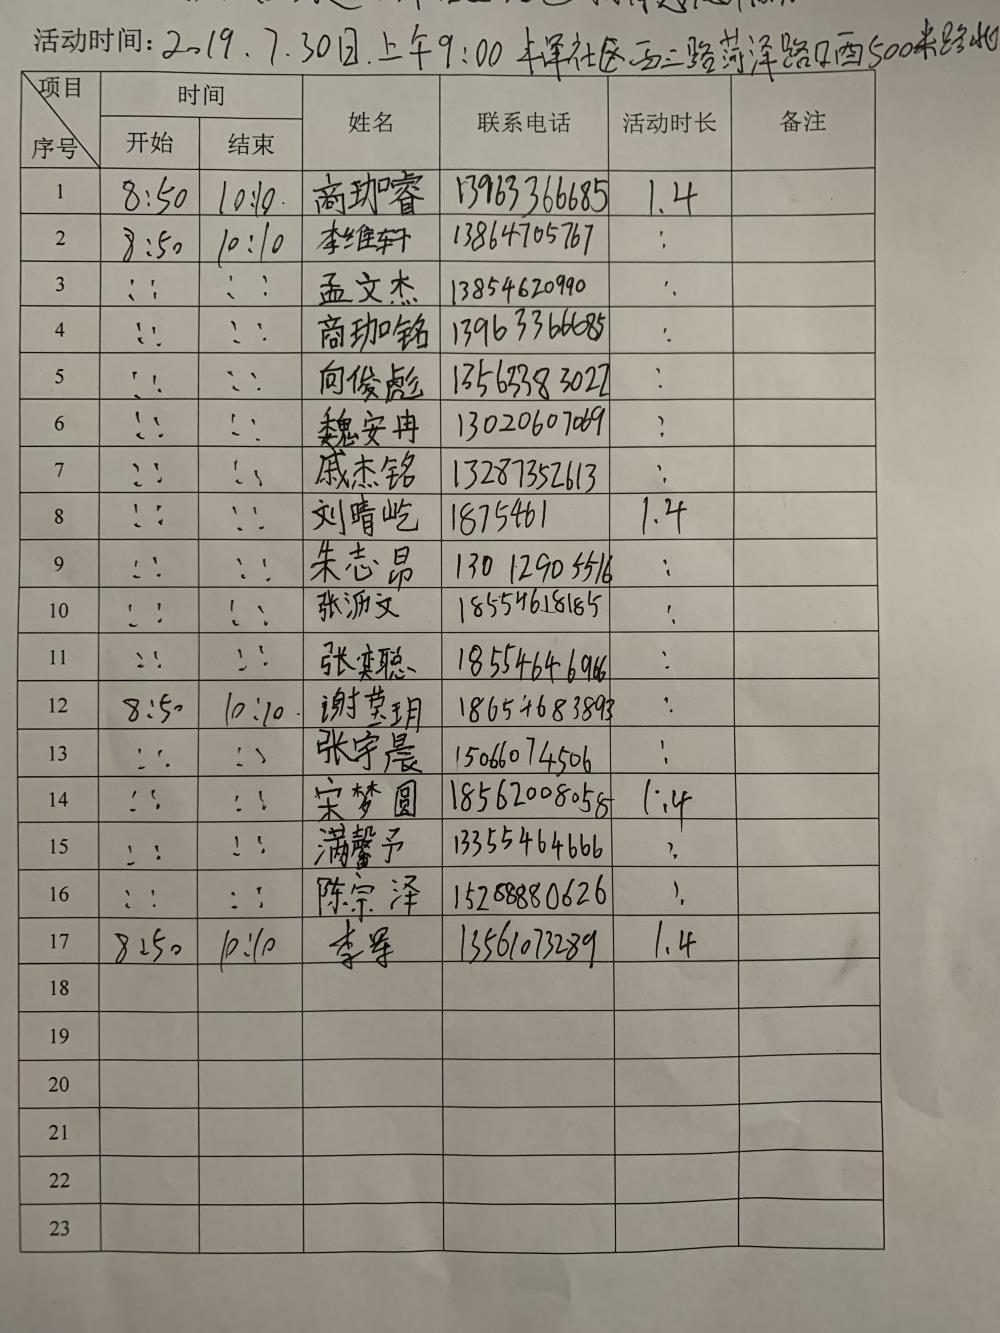 活动时间：2019.7.30日.上午9:00 丰泽社区西二路菏泽路口西500米路北
项目 时间 姓名 联系电话 活动时长 备注
序号 开始 结束
1 8:50 10:10. 商珈睿 13963366685 1.4
2 8:50 10:10 李维轩 13864705767 :
3 :: :: 孟文杰 13854620990 :
4 :: :: 商珈铭 13963366685 :
5 :: :: 向俊彪 13563383022 :
6 :: :: 魏安冉 13020607069 :
7 :: :: 戚杰铭 13287352613 :
8 :: :: 刘晴屹 1875461 1.4
9 :: :: 朱志昂 13012905516 :
10 :: :: 张沥文 18554618185 :
11 :: :: 张奕聪 18554646966 :
12 8:50 10:10. 谢莫玥 18654683893 :
13 :: :: 张宇晨 15066074506 :
14 :: :: 宋梦圆 18562008058 1.4
15 :: :: 满馨予 13355464666 :
16 :: :: 陈宗泽 15288880626 :
17 8:50 10:10 李军 13561073289 1.4
18
19
20
21
22
23